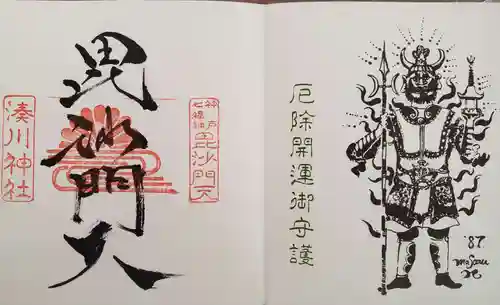 厄除開運御守護
神戸
七福神
毘沙門天
毘沙門天
湊川神社
'87.